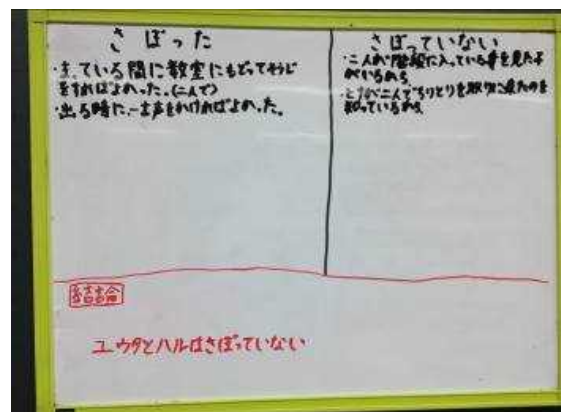 さぼった
・まっている間に教室にもどってそうじ
をすればよかった。(二人で)
・出る時に、一声をかければよかった。
さぼっていない
・二人が階段に入っている事を見た子
がいるから
・とナベ二人でちりとりを取りに来たのを
知っているから
結論
ユウタとハルはさぼっていない